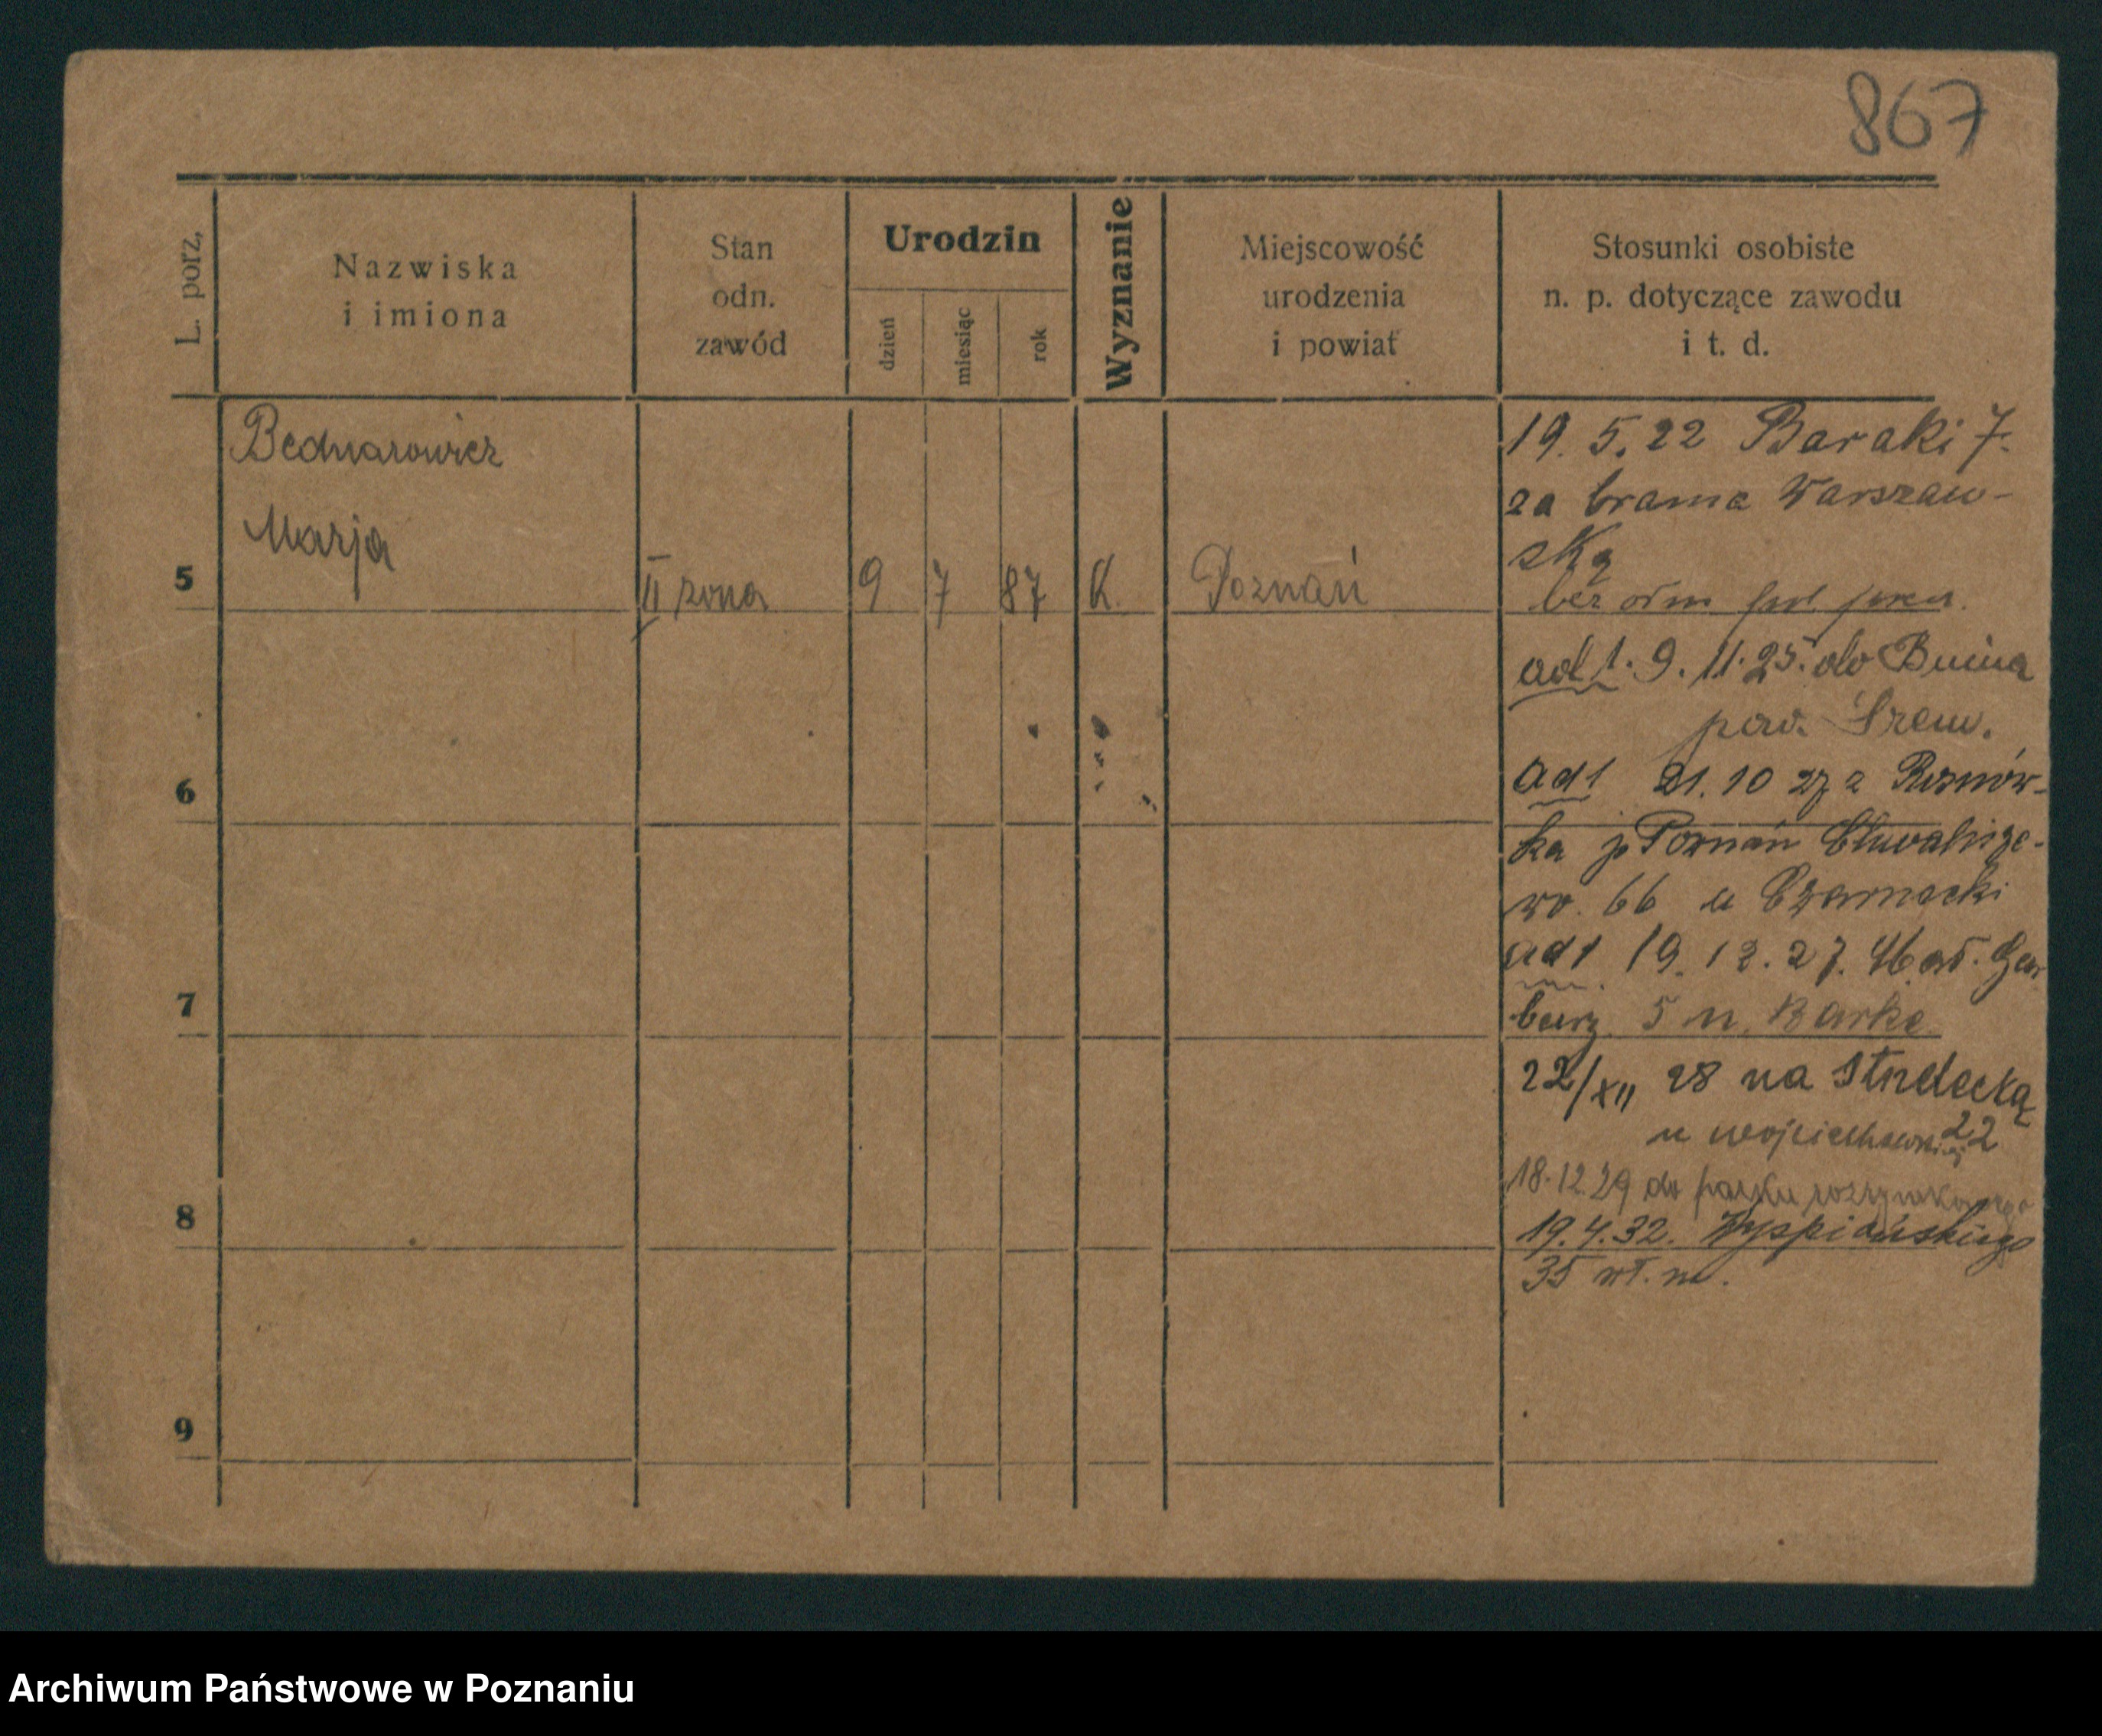 867
L. porz,
Nazwiska
i imiona
Stan
odn.
zawód
Urodzin
dzień
miesiąc
rok
Wyznanie
Miejscowość
urodzenia
i powiat
Stosunki osobiste
n. p. dotyczące zawodu
i t. d.
Bednarowicz
Marja
5
II żona
9
7
87
K.
Poznań
19. 5. 22 Baraki 7.
za brama Warszaw-
ską
bez
ad 1. 9. 11. 25. do Bnina
pow. Śrem.
6
ad 1 21. 10 27 z
ka p Poznań Chwalisze-
wo. 66 u Czarnecki
ad 1 19. 12. 27. Gar
7
bary 5 u. Barke
22/XII 28 na Strzelecką
22
u Wojciechowskiej
18. 12. 29 do parku
8
19. 4. 32. Wyspiańskiego
35 wł. m.
9
Archiwum Państwowe w Poznaniu